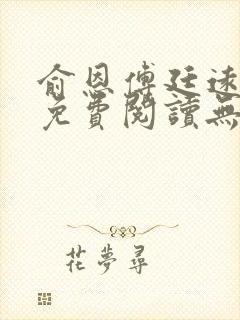 俞恩傅廷遠
免費閱讀無
花夢尋